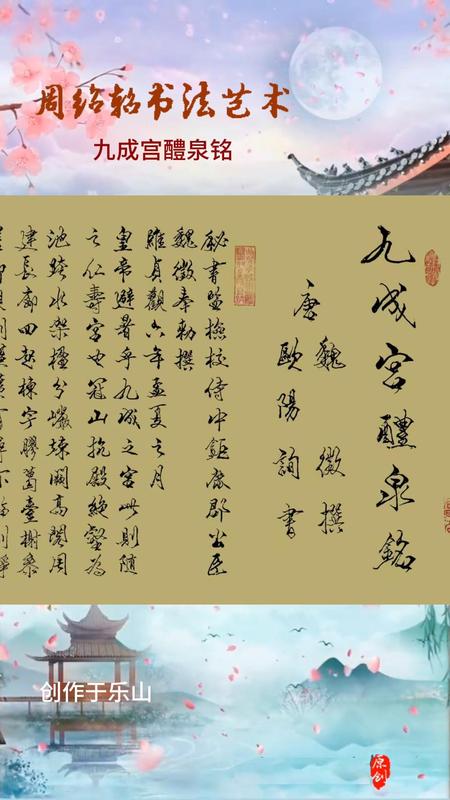 周绍书法艺术
九成宫醴泉铭
九成宮醴泉銘
魏徵撰
唐歐陽詢書
秘書監撿校侍中鉅鹿郡公臣
魏徵奉勅撰
維貞觀六年孟夏之月
皇帝避暑乎九成之宮此則隨
之仁壽宮也冠山抗殿絕壑為
池跨水架楹分巖竦闕高閣周
建長廊四起棟宇膠葛臺榭參
创作于乐山
原创